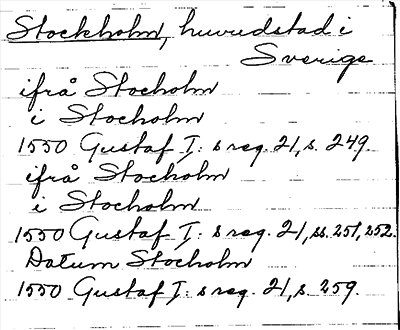 Stockholm, huvudstad i
Sverige
ifrå Stocholm
i Stocholm
1550 Gustaf I: s reg. 21, s. 249.
ifrå Stocholm
i Stocholm
1550 Gustaf I: s reg. 21, ss. 251, 252.
Datum Stocholm
1550 Gustaf I: s reg. 21, s. 259.